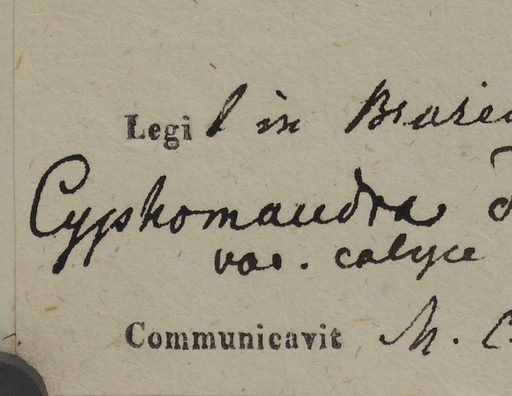 Legi l in Brasie
Cyphomandra
var. calyce
Communicavit M. C.